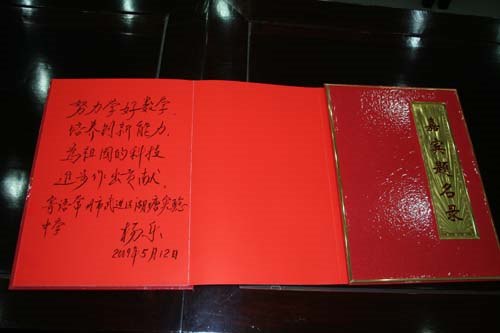 努力学好数学
培养创新能力,
为祖国的科技
进步作出贡献.
寄语常州市武进区湖塘实验
中学
杨乐
2009年5月12日
嘉宾题名录